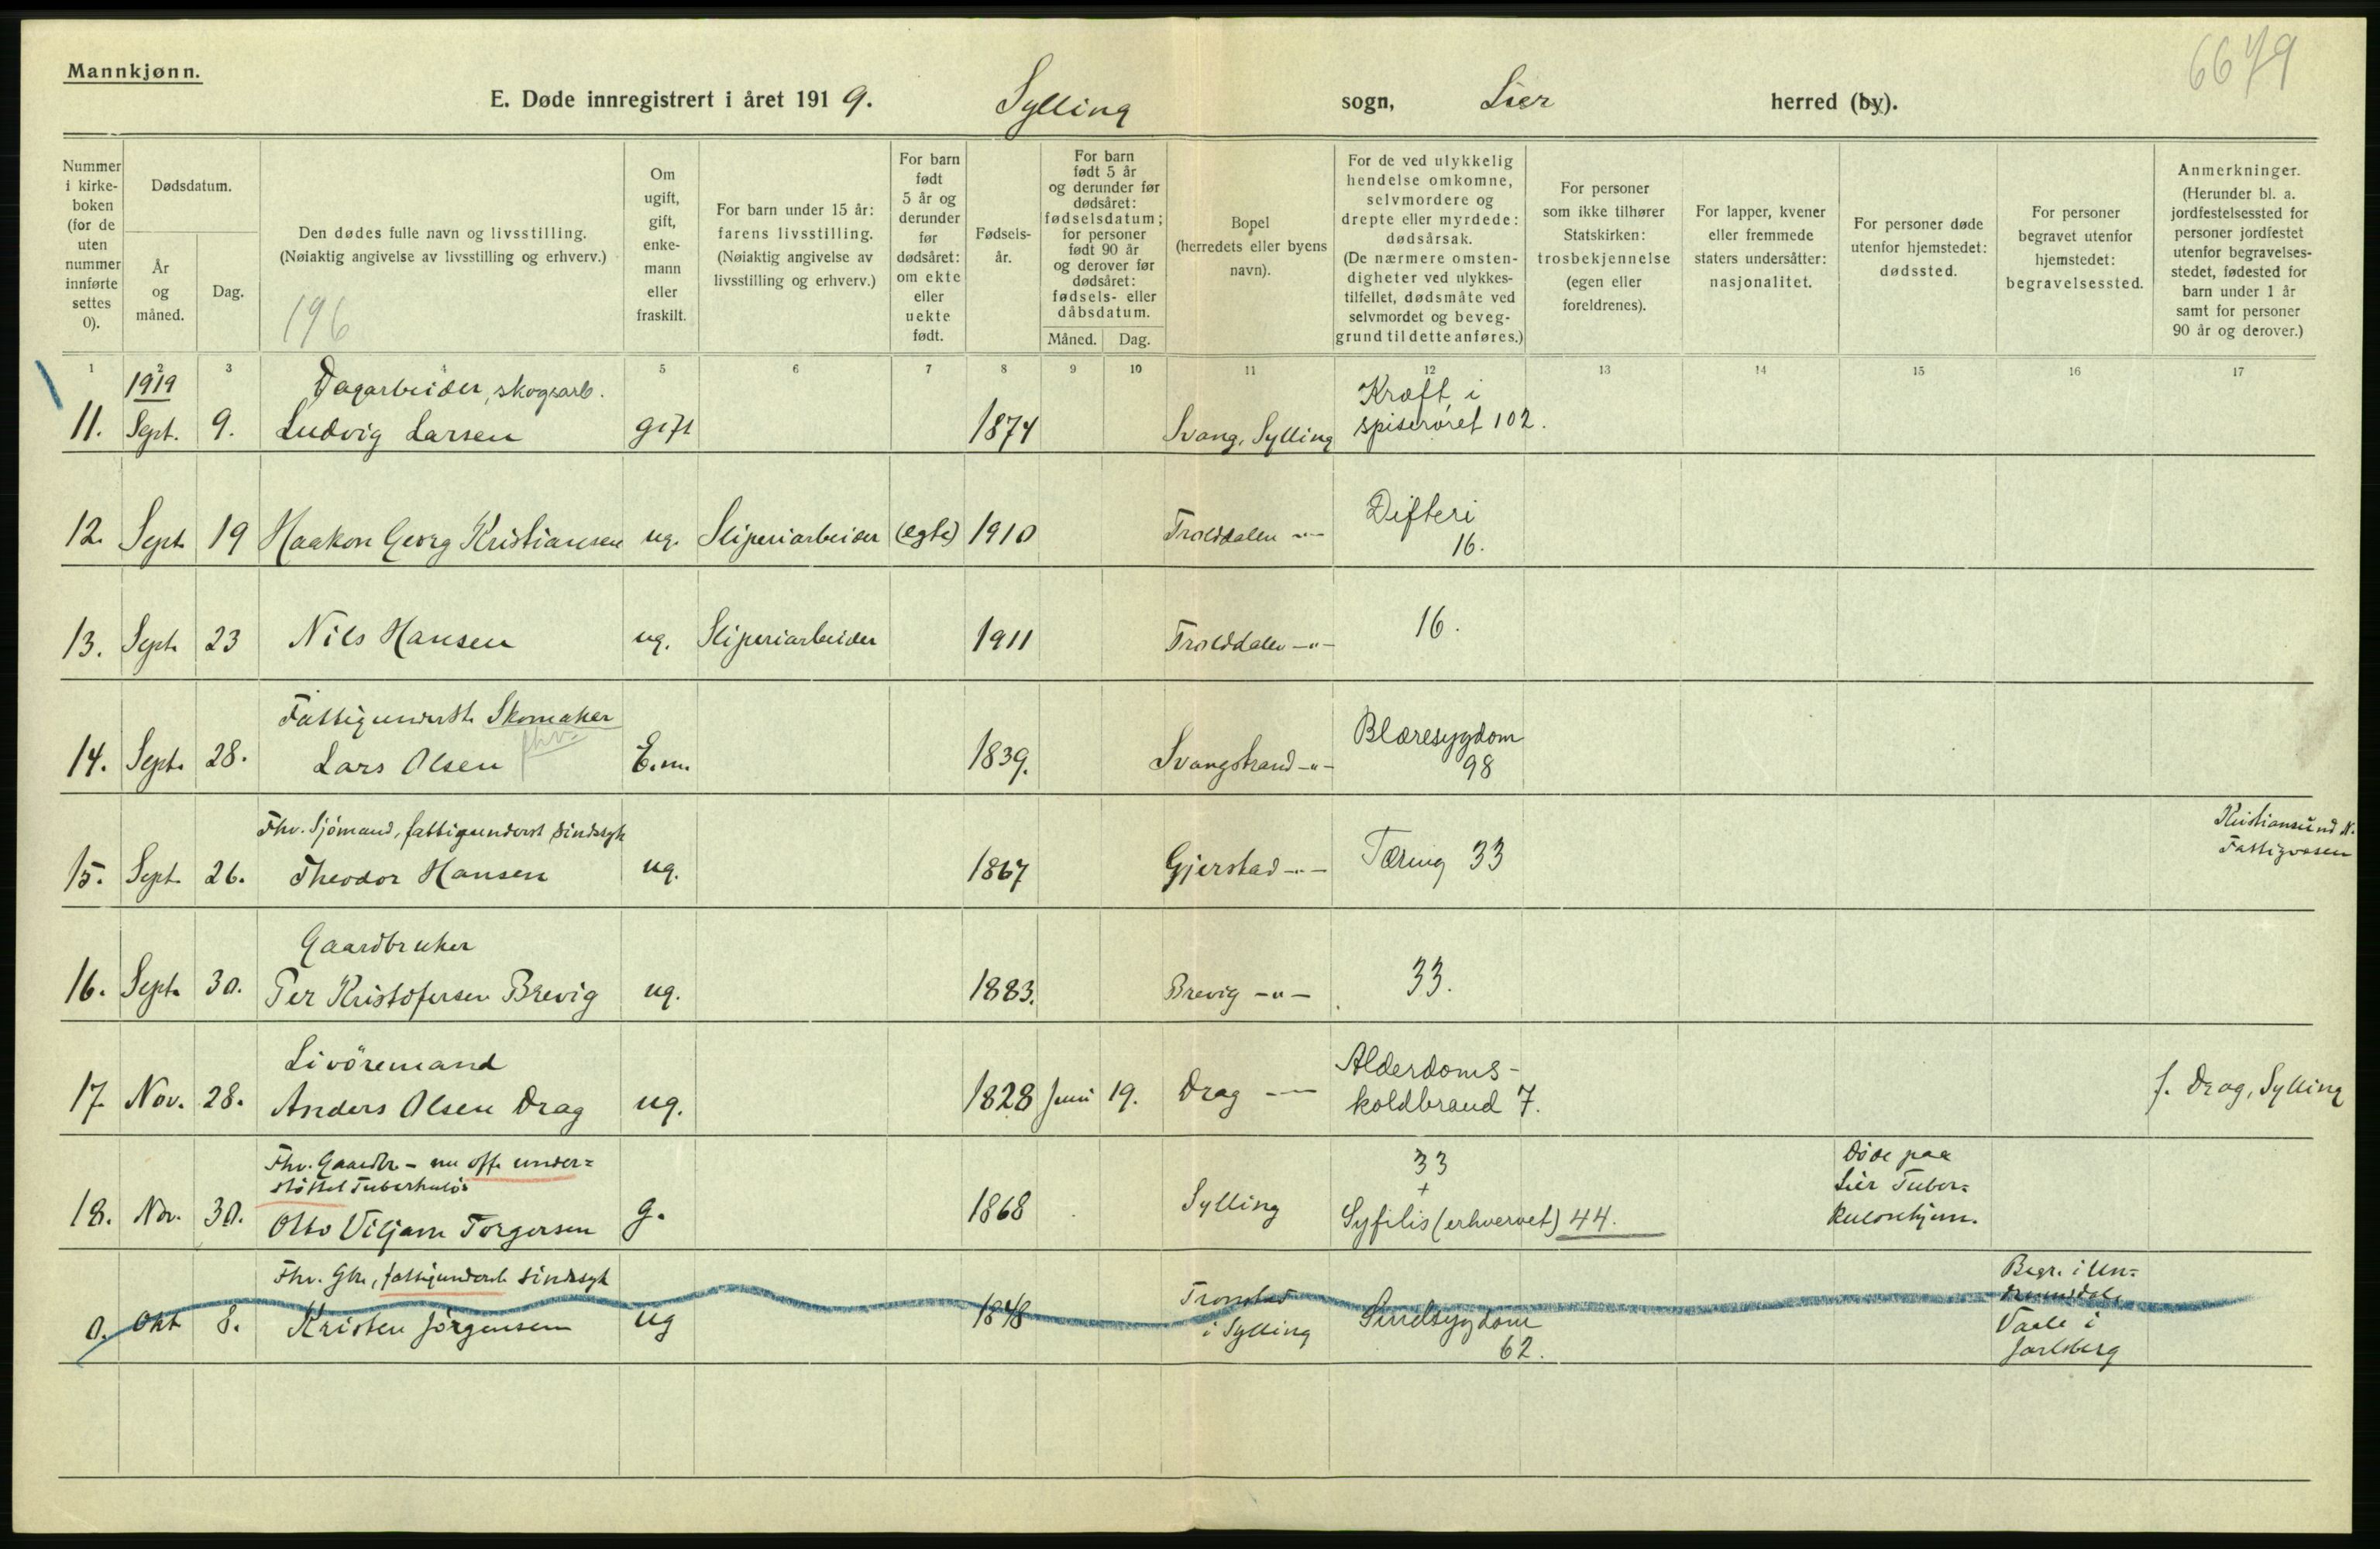 Mannkjønn.
6679
E. Døde innregistrert i året 1919. Sylling sogn, Lier herred (by).
Nummer i kirke- boken (for de uten nummer innførte settes 0).
Dødsdatum.
År og måned.
Dag.
Den dødes fulle navn og livsstilling.
(Nøiaktig angivelse av livsstilling og erhverv.)
196
Om ugift, gift, enke- mann eller fraskilt.
For barn under 15 år: farens livsstilling. (Nøiaktig angivelse av livsstilling og erhverv.)
For barn født 5 år og derunder før dødsåret: om ekte eller uekte født.
Fødsels- år.
For barn født 5 år og derunder før dødsåret: fødselsdatum; for personer født 90 år og derover før dødsåret: fødsels- eller dåbsdatum.
Måned. Dag.
Bopel (herredets eller byens navn).
For de ved ulykkelig hendelse omkomne, selvmordere og drepte eller myrdede: dødsårsak. (De nærmere omsten- digheter ved ulykkes- tilfellet, dødsmåte ved selvmordet og beveg- grund til dette anføres.)
For personer som ikke tilhører Statskirken: trosbekjennelse (egen eller foreldrenes).
For lapper, kvener eller fremmede staters undersåtter: nasjonalitet.
For personer døde utenfor hjemstedet: dødssted.
For personer begravet utenfor hjemstedet: begravelsessted.
Anmerkninger. (Herunder bl. a. jordfestelsessted for personer jordfestet utenfor begravelses- stedet, fødested for barn under 1 år samt for personer 90 år og derover.)
1 2 3 4 5 6 7 8 9 10 11 12 13 14 15 16 17
1919 Dagarbeider, skogsarb. Kræft i
11. Sept. 9. Ludvig Larsen gift 1874 Svang, Sylling spiserøret 102.
Difteri
12. Sept. 19 Haakon Georg Kristiansen ug. Sliperiarbeider (egte) 1910 Trolddalen -"- 16.
13. Sept. 23 Nils Hansen ug. Sliperiarbeider 1911 Trolddalen -"- 16.
Fattigunderst. Skomaker
fhv.
Blæresygdom
14. Sept. 28. Lars Olsen E.m. 1839. Svangstrand -"- 98
Fhv. Sjömand, fattigunderst sindssyk Kristiansund N.
15. Sept. 26. Theodor Hansen ug. 1867 Gjerstad -"- Tæring 33 Fattigvæsen
Gaardbruker
16. Sept. 30. Per Kristofersen Brevig ug. 1883. Brevig -"- 33.
Livöremand Alderdoms-
17. Nov. 28. Anders Olsen Drag ug. 1828 Juni 19. Drag -"- koldbrand 7. f. Drag, Sylling
Fhv. Gaardbr. - nu off. under= 33 Døde paa
støttet Tuberkuløs + Lier Tuber=
18. Nov. 30. Otto Viljam Torgersen g. 1868 Sylling Syfilis (erhvervet) 44. kulosehjem.
Fhv. Gbr., fattigunderst. sindssyk Begr. i Un=
Tronstad drumsdal
0. Okt 8. Kristen Jörgensen ug 1848 i Sylling Sindsygdom Vaale i
62. Jarlsberg